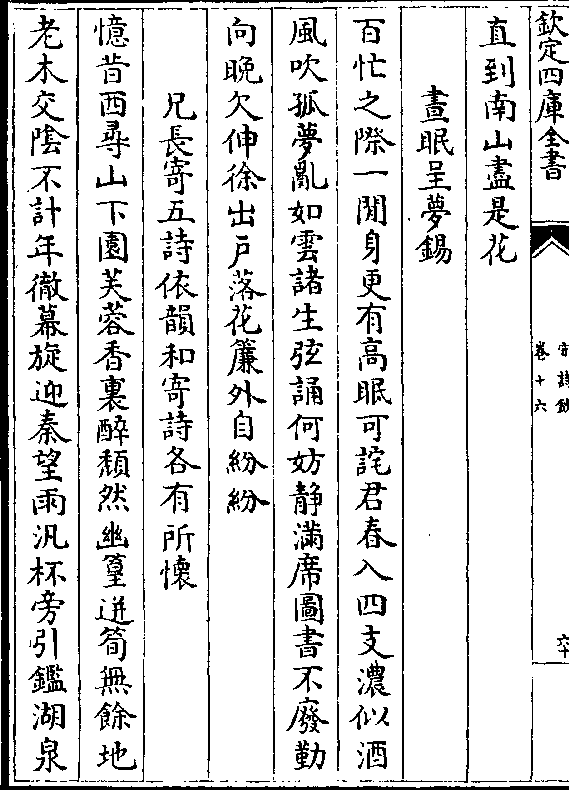 欽定四庫全書
宋詩鈔
卷十六
六十
直到南山盡是花
晝眠呈夢錫
百忙之際一閒身更有高眠可詫君春入四支濃似酒
風吹孤夢亂如雲諸生弦誦何妨静滿席圖書不廢勤
向晚欠伸徐出戶落花簾外自紛紛
兄長寄五詩依韻和寄詩各有所懷
憶昔西尋山下園芙蓉香裏醉頽然幽篁迸筍無餘地
老木交陰不計年徹幕旋迎秦望雨汎杯旁引鑑湖泉